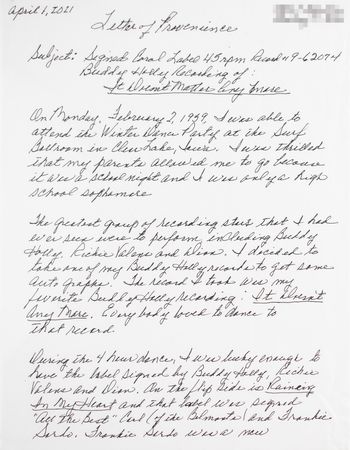 April 1, 2021
Letter of Provenience
Subject: Signed Coral Label 45 rpm Record #9-62074
Buddy Holly Recording of:
It Doesn't Matter Any More
On Monday, February 2, 1959, I was able to
attend the Winter Dance Party at the Surf
Ballroom in Clear Lake, Iowa. I was thrilled
that my parents allowed me to go because
it was a school night and I was only a high
school sophomore
The greatest group of recording stars that I had
ever seen were to perform, including Buddy
Holly, Richie Valens and Dion. I decided to
take one of my Buddy Holly records to get some
Auto graphs. The record I took was my
favorite Buddy Holly recording: It Doesn't
Any More. Everybody loved to dance to
that record.
During the 4 hour dance, I was lucky enough to
have the label signed by Buddy Holly, Richie
Valens and Dion. On the flip side is Raining
In My Heart and that label was signed
"All The Best" Carl (of the Belmonts) and Frankie
Sardo. Frankie Sardo was a new